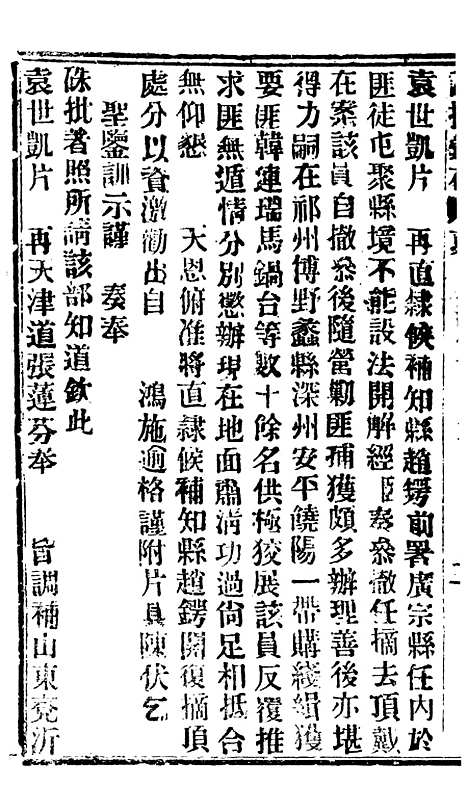 袁世凱片　再直隸候補知縣趙鍔前署廣宗縣任內於
匪徒屯聚縣境不能設法開解經臣奏叅撤任摘去頂戴
在案該員自撤叅後隨營勦匪捕獲頗多辦理善後亦堪
得力嗣在祁州博野蠡縣深州安平饒陽一帶購綫緝獲
要匪韓連瑞馬鍋台等數十餘名供極狡展該員反覆推
求匪無遁情分別懲辦現在地面肅清功過尙足相抵合
無仰懇　天恩俯准將直隸候補知縣趙鍔開復摘頂
處分以資激勸出自　鴻施逾格謹附片具陳伏乞
聖鑒訓示謹　奏奉
硃批著照所請該部知道欽此
袁世凱片　再天津道張蓮芬奉　旨調補山東兗沂